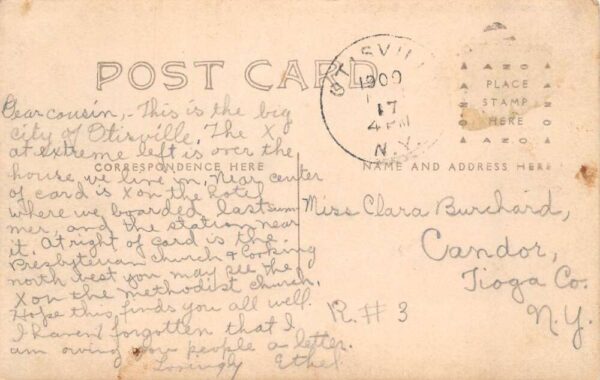 POST CARD
OTISVILLE
1909
17
4 PM
N.Y.
AZO
PLACE
STAMP
HERE
AZO
CORRESPONDENCE HERE
NAME AND ADDRESS HERE
Dear cousin,- This is the big
city of Otisville. The X
at extreme left is over the
house we live in. Near center
of card is X on the Hotel
where we boarded last sum
mer, and the station near
it. At right of card is the
Presbyterian Church & looking
north west you may see the
X on the methodist church.
Hope this finds you all well.
I haven't forgotten that I
am owing you people a letter.
Lovingly Ethel
Miss Clara Burchard,
Candor,
Tioga Co.
R.#3 N.Y.